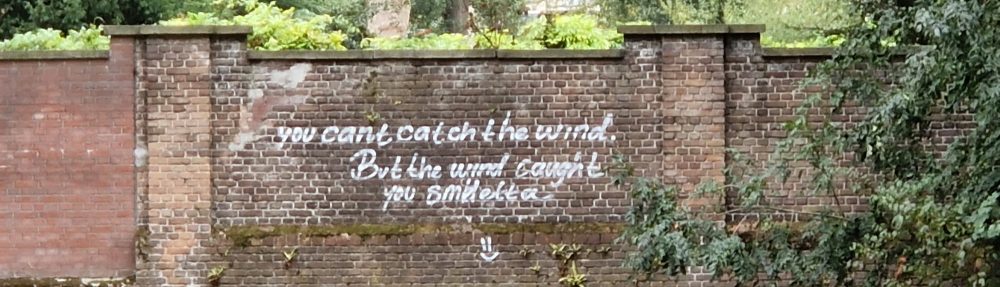 you cant catch the wind.
But the wind caught
you smbletta